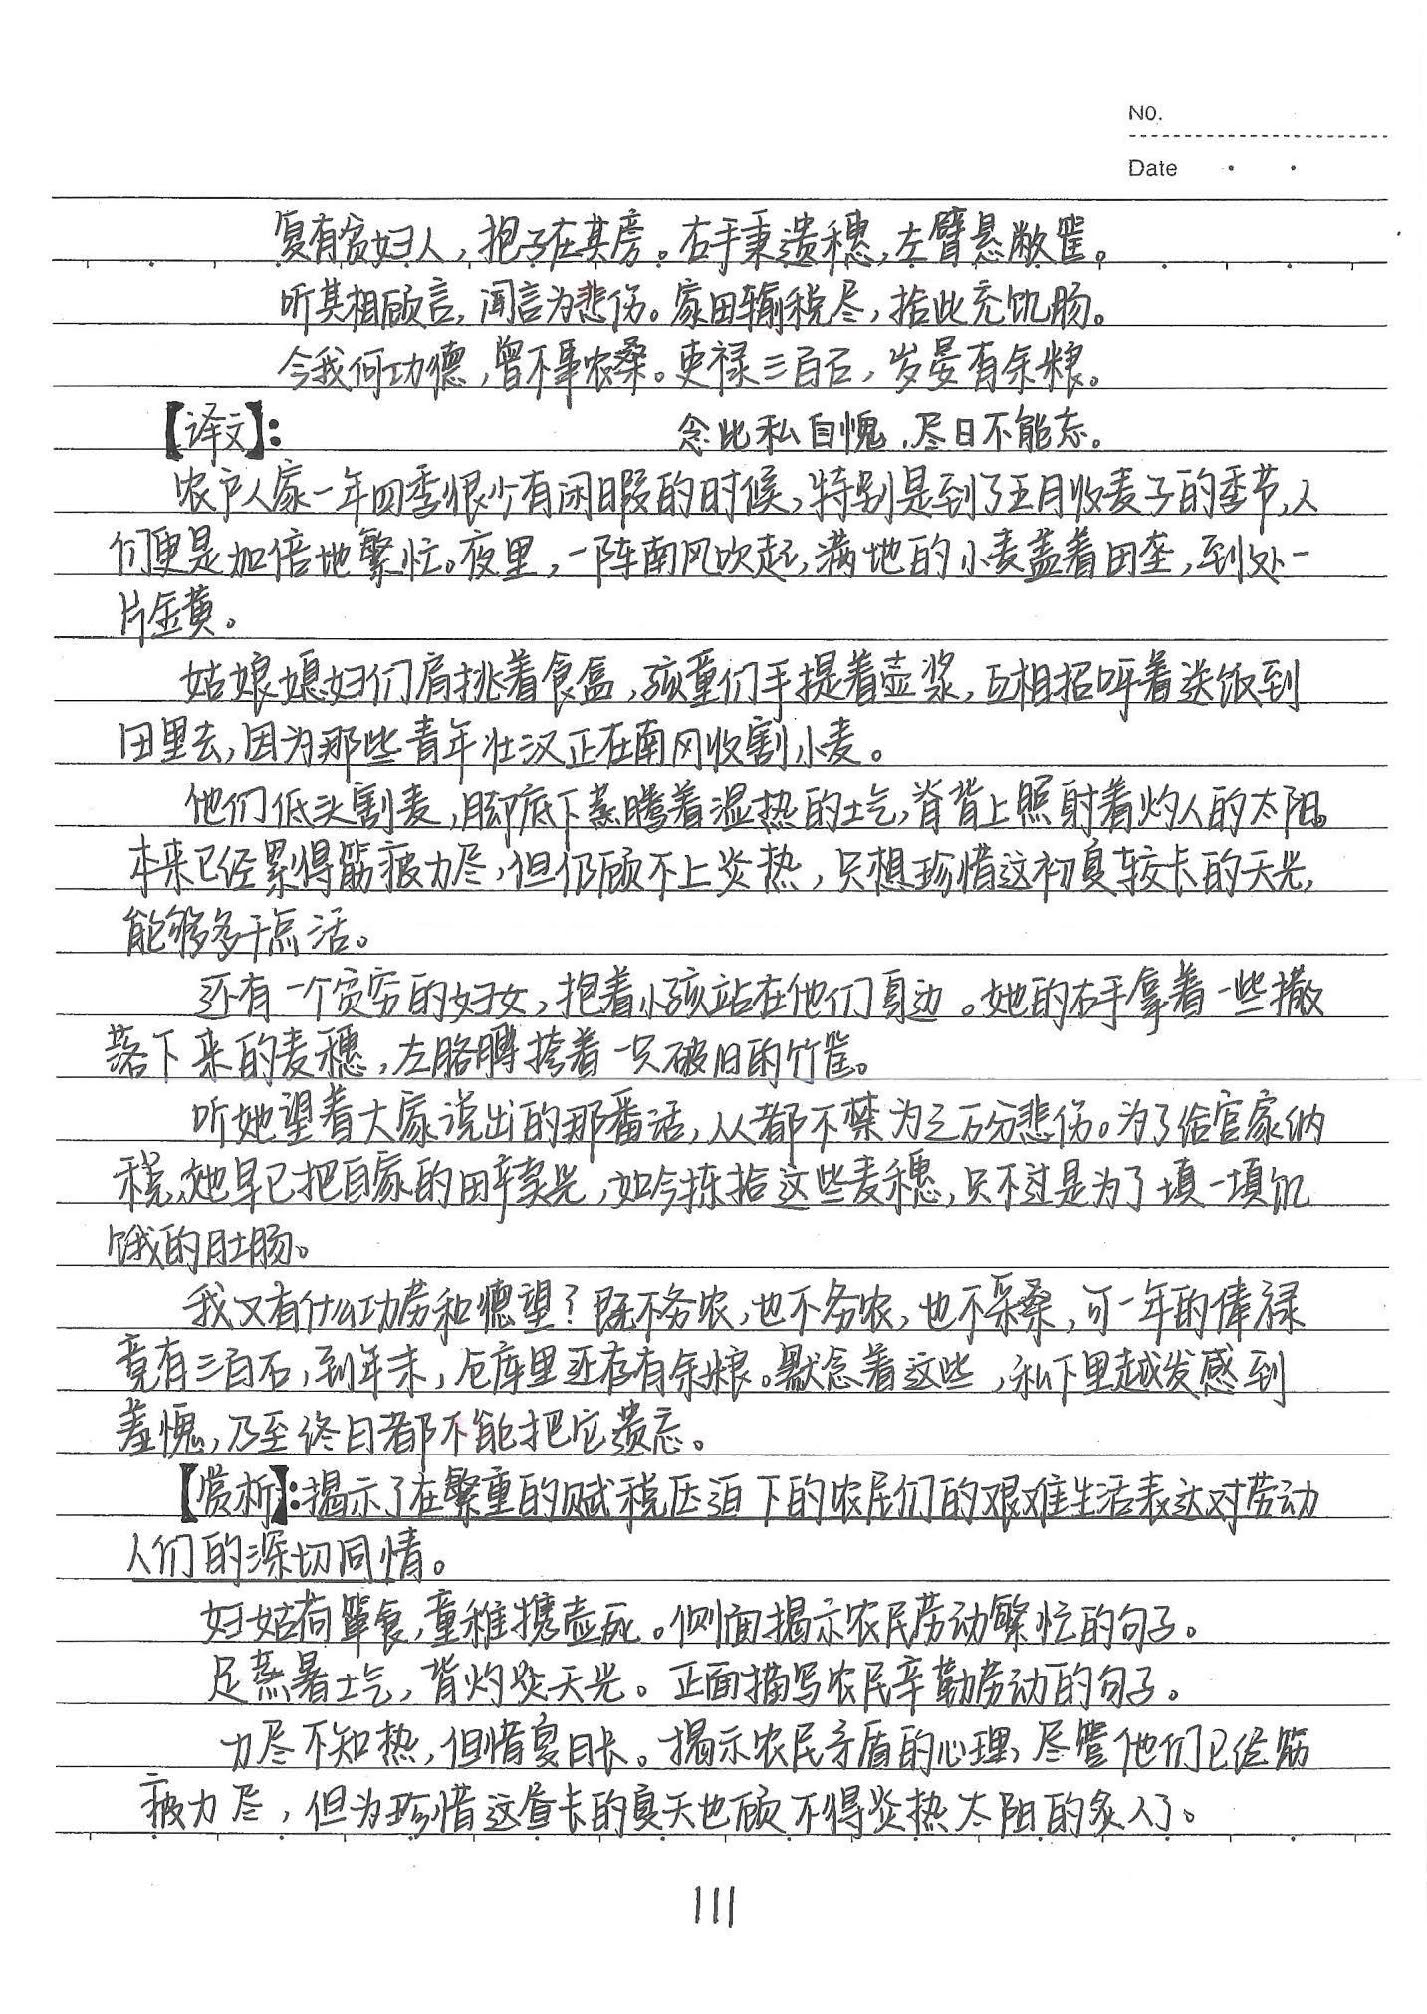 No.
Date
复有贫妇人，抱子在其旁。右手秉遗穗，左臂悬敝筐。
听其相顾言，闻言为悲伤。家田输税尽，拾此充饥肠。
今我何功德，曾不事农桑。吏禄三百石，岁晏有余粮。
【译文】： 念此私自愧，尽日不能忘。
农户人家一年四季很少有闲暇的时候，特别是到了五月收麦子的季节，人
们更是加倍地繁忙。夜里，一阵南风吹起，满地的小麦盖着田垄，到处一
片金黄。
姑娘媳妇们肩挑着食盒，孩童们手提着壶浆，互相招呼着送饭到
田里去，因为那些青年壮汉正在南冈收割小麦。
他们低头割麦，脚底下蒸腾着湿热的土气，脊背上照射着灼人的太阳。
本来已经累得筋疲力尽，但仍顾不上炎热，只想珍惜这初夏较长的天光，
能够多干点活。
还有一个贫穷的妇女，抱着小孩站在他们身边。她的右手拿着一些撒
落下来的麦穗，左胳膊挎着一只破旧的竹筐。
听她望着大家说出的那番话，人人都不禁为之万分悲伤。为了给官家纳
税，她早已把自家的田卖光，如今拣拾这些麦穗，只不过是为了填一填饥
饿的肚肠。
我又有什么功劳和德望？既不务农，也不务农，也不采桑，可一年的俸禄
竟有三百石，到年末，仓库里还存有余粮。默念着这些，私下里越发感到
羞愧，乃至终日都不能把它遗忘。
【赏析】：揭示了在繁重的赋税压迫下的农民们的艰难生活表达对劳动
人们的深切同情。
妇姑荷箪食，童稚携壶浆。侧面揭示农民劳动繁忙的句子。
足蒸暑土气，背灼炎天光。正面描写农民辛勤劳动的句子。
力尽不知热，但惜夏日长。揭示农民矛盾的心理，尽管他们已经筋
疲力尽，但为珍惜这昼长的夏天也顾不得炎热太阳的炙人了。
111